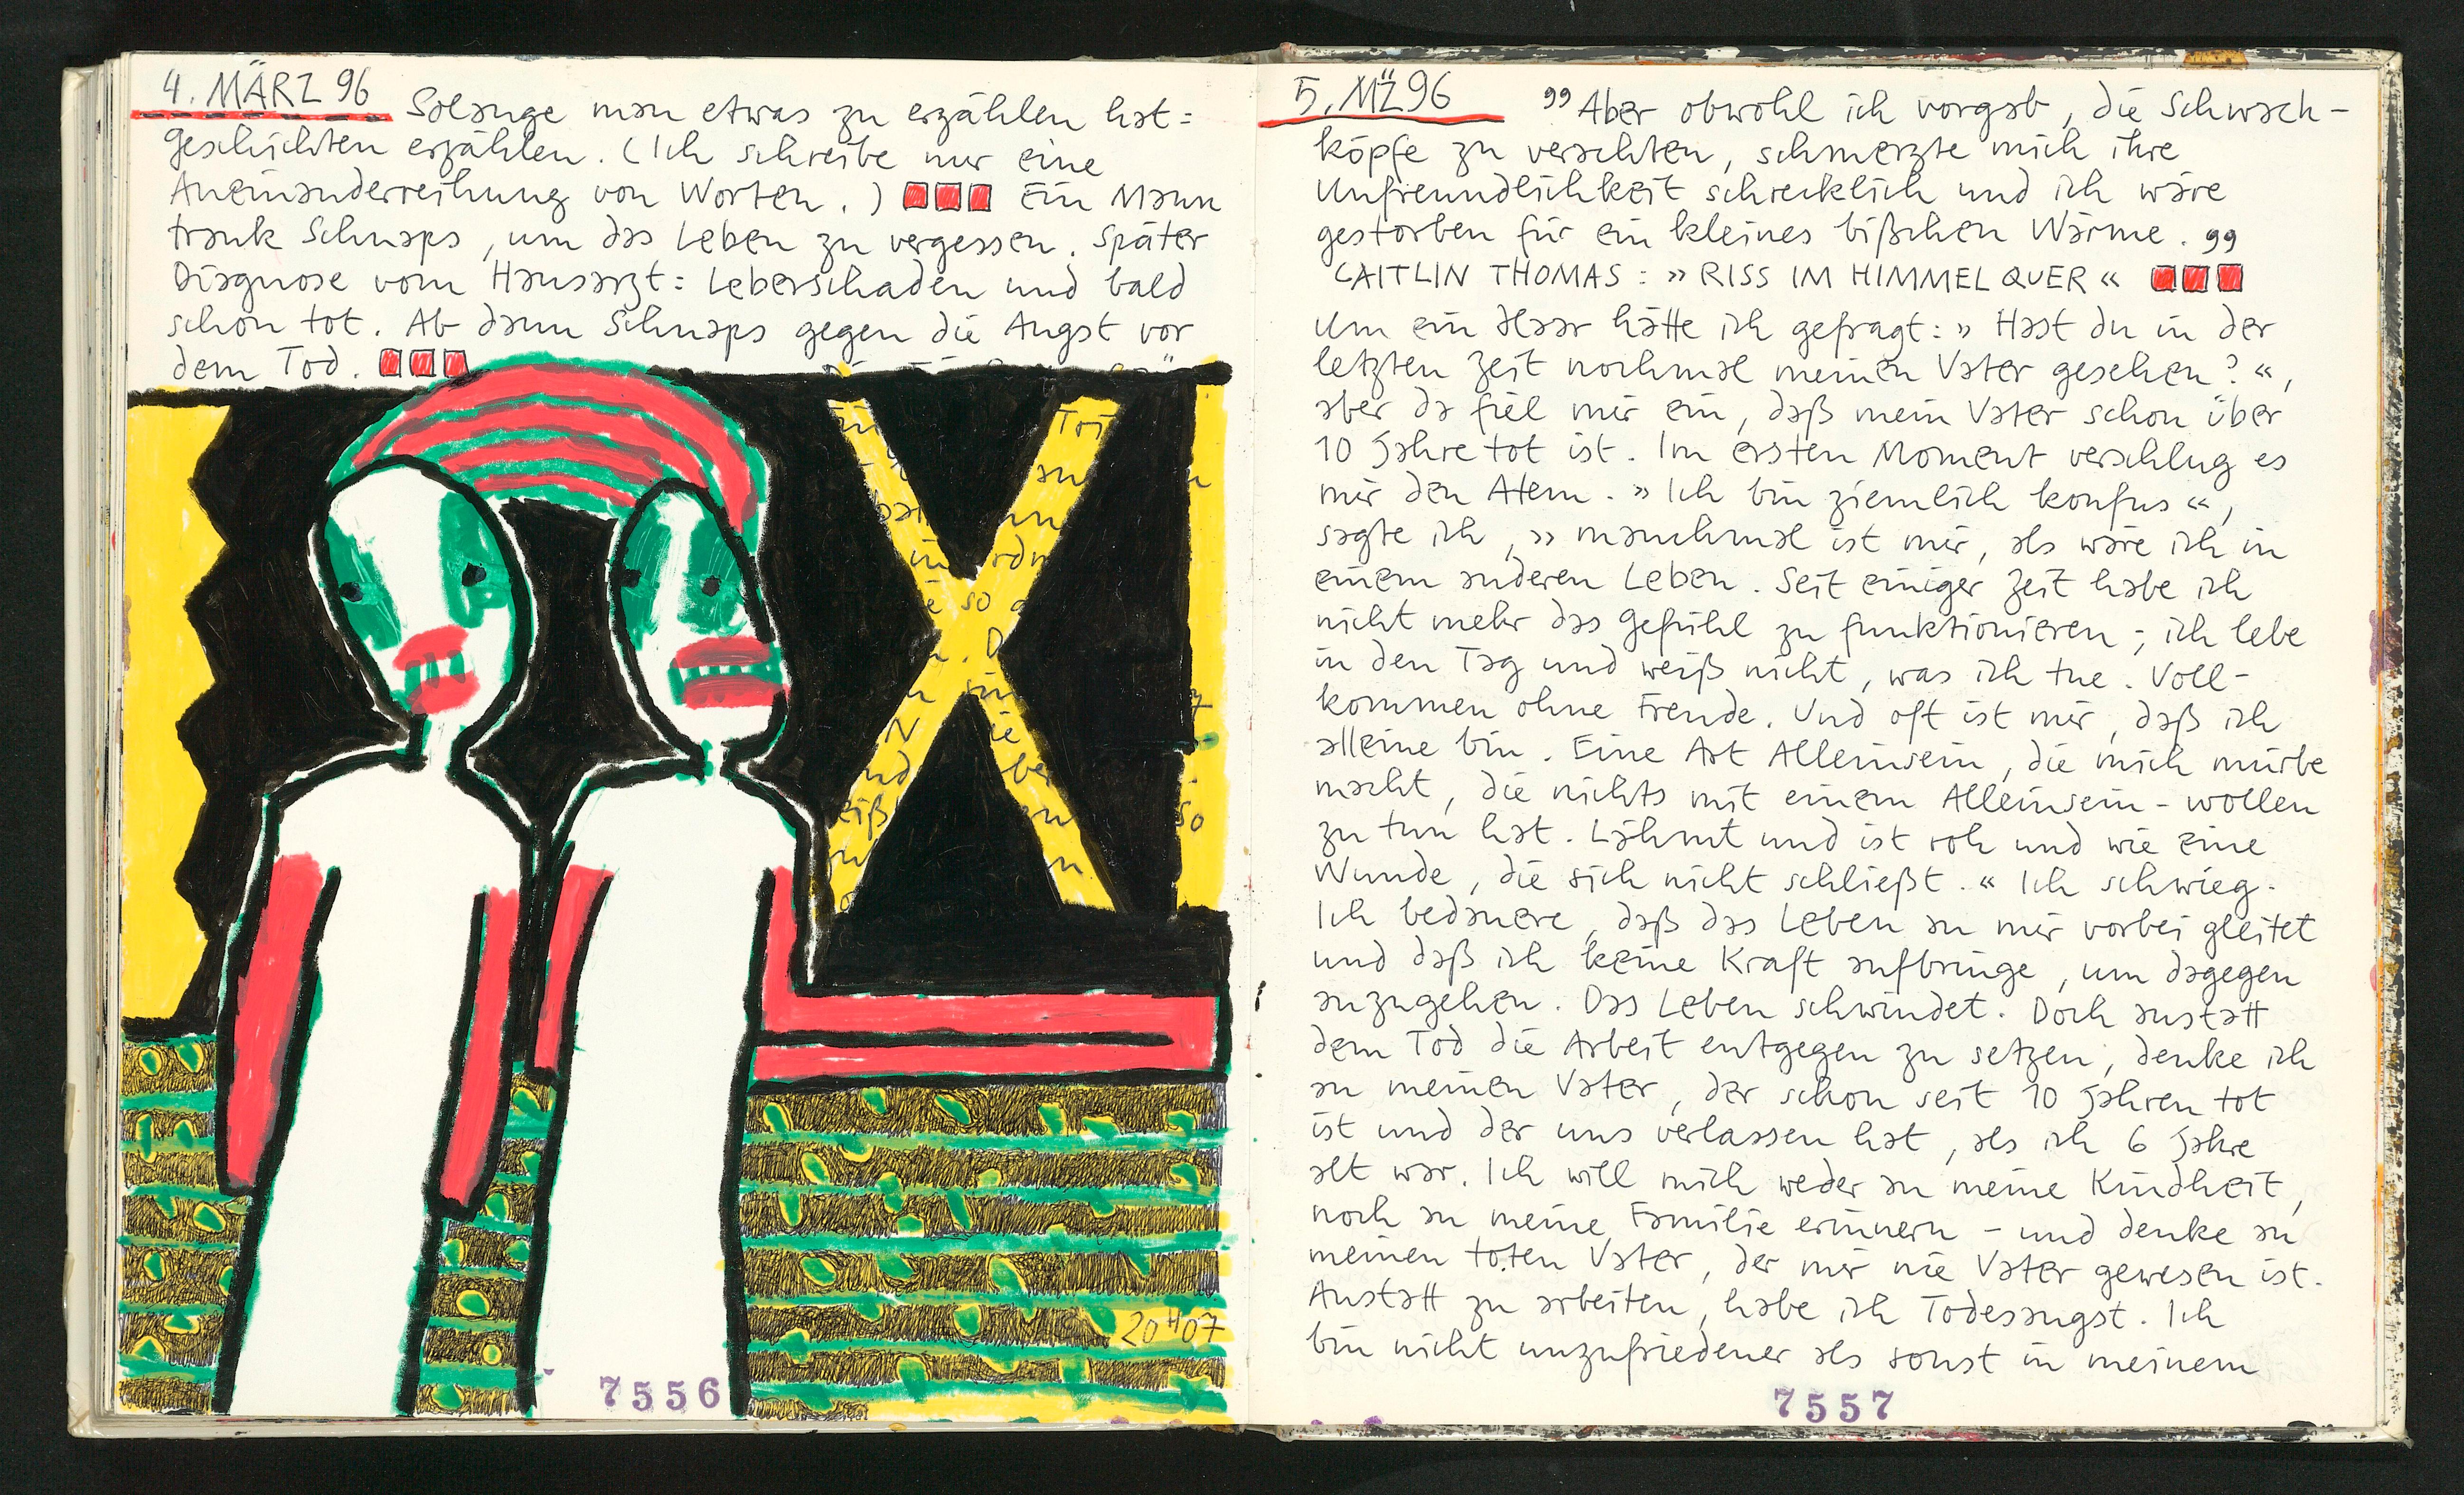 4. MÄRZ 96 Solange man etwas zu erzählen hat:
Geschichten erzählen. (Ich schreibe nur eine
Aneinanderreihung von Worten.) Ein Mann
trank Schnaps, um das Leben zu vergessen. Später
Diagnose vom Hausarzt: Leberschaden und bald
schon tot. Ab dann Schnaps gegen die Angst vor
dem Tod.
Tri
so
20H07
7556
5. MZ 96 "Aber obwohl ich vorgab, die Schwach-
köpfe zu verachten, schmerzte mich ihre
Unfreundlichkeit schrecklich und ich wäre
gestorben für ein kleines bißchen Wärme."
CAITLIN THOMAS: »RISS IM HIMMEL QUER«
Um ein Haar hätte ich gefragt: »Hast du in der
letzten Zeit nochmal meinen Vater gesehen?«,
aber da fiel mir ein, daß mein Vater schon über
10 Jahre tot ist. Im ersten Moment verschlug es
mir den Atem. »Ich bin ziemlich konfus«,
sagte ich, »manchmal ist mir, als wäre ich in
einem anderen Leben. Seit einiger Zeit habe ich
nicht mehr das Gefühl zu funktionieren; ich lebe
in den Tag und weiß nicht, was ich tue. Voll-
kommen ohne Freude. Und oft ist mir, daß ich
alleine bin. Eine Art Alleinsein, die mich mürbe
macht, die nichts mit einem Alleinsein-wollen
zu tun hat. Lähmt und ist roh und wie eine
Wunde, die sich nicht schließt.« Ich schwieg.
Ich bedauere, daß das Leben an mir vorbei gleitet
und daß ich keine Kraft aufbringe, um dagegen
anzugehen. Das Leben schwindet. Doch anstatt
dem Tod die Arbeit entgegen zu setzen, denke ich
an meinen Vater, der schon seit 10 Jahren tot
ist und der uns verlassen hat, als ich 6 Jahre
alt war. Ich will mich weder an meine Kindheit,
noch an meine Familie erinnern – und denke an
meinen toten Vater, der mir nie Vater gewesen ist.
Anstatt zu arbeiten, habe ich Todesangst. Ich
bin nicht unzufriedener als sonst in meinem
7557